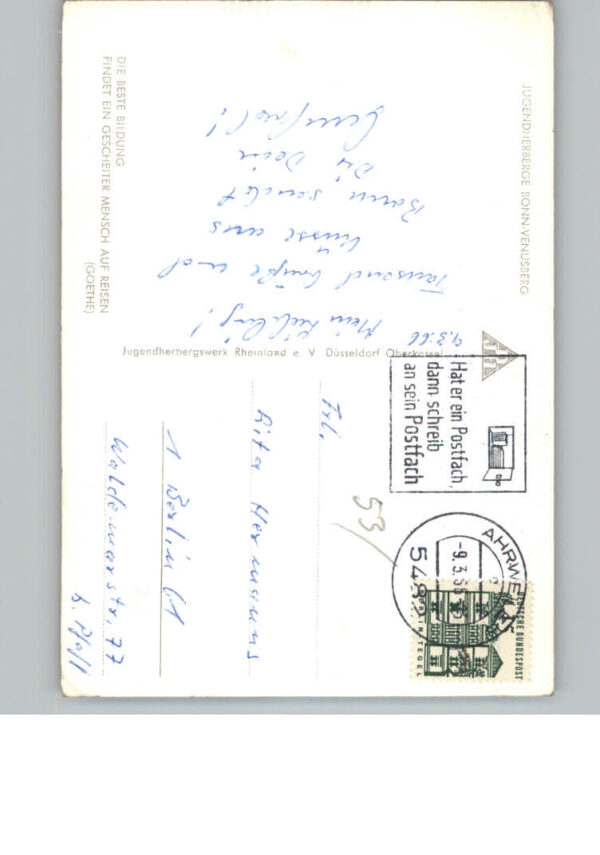 JUGENDHERBERGE BONN-VENUSBERG
9.3.66
Mein Liebling!
Tausend Grüße und
Küsse aus
Bonn sendet
Dir Dein
DIE BESTE BILDUNG
FINDET EIN GESCHEITER MENSCH AUF REISEN
(GOETHE)
Jugendherbergswerk Rheinland e. V Düsseldorf Oberkassel
Hat er ein Postfach,
dann schreib
an sein Postfach
AHRWEILER
-9.3.66
5482
DEUTSCHE BUNDESPOST
TEGEL
53
Frl.
Rita Hermanns
1 Berlin 61
Waldemarstr. 77
b. Pfaff